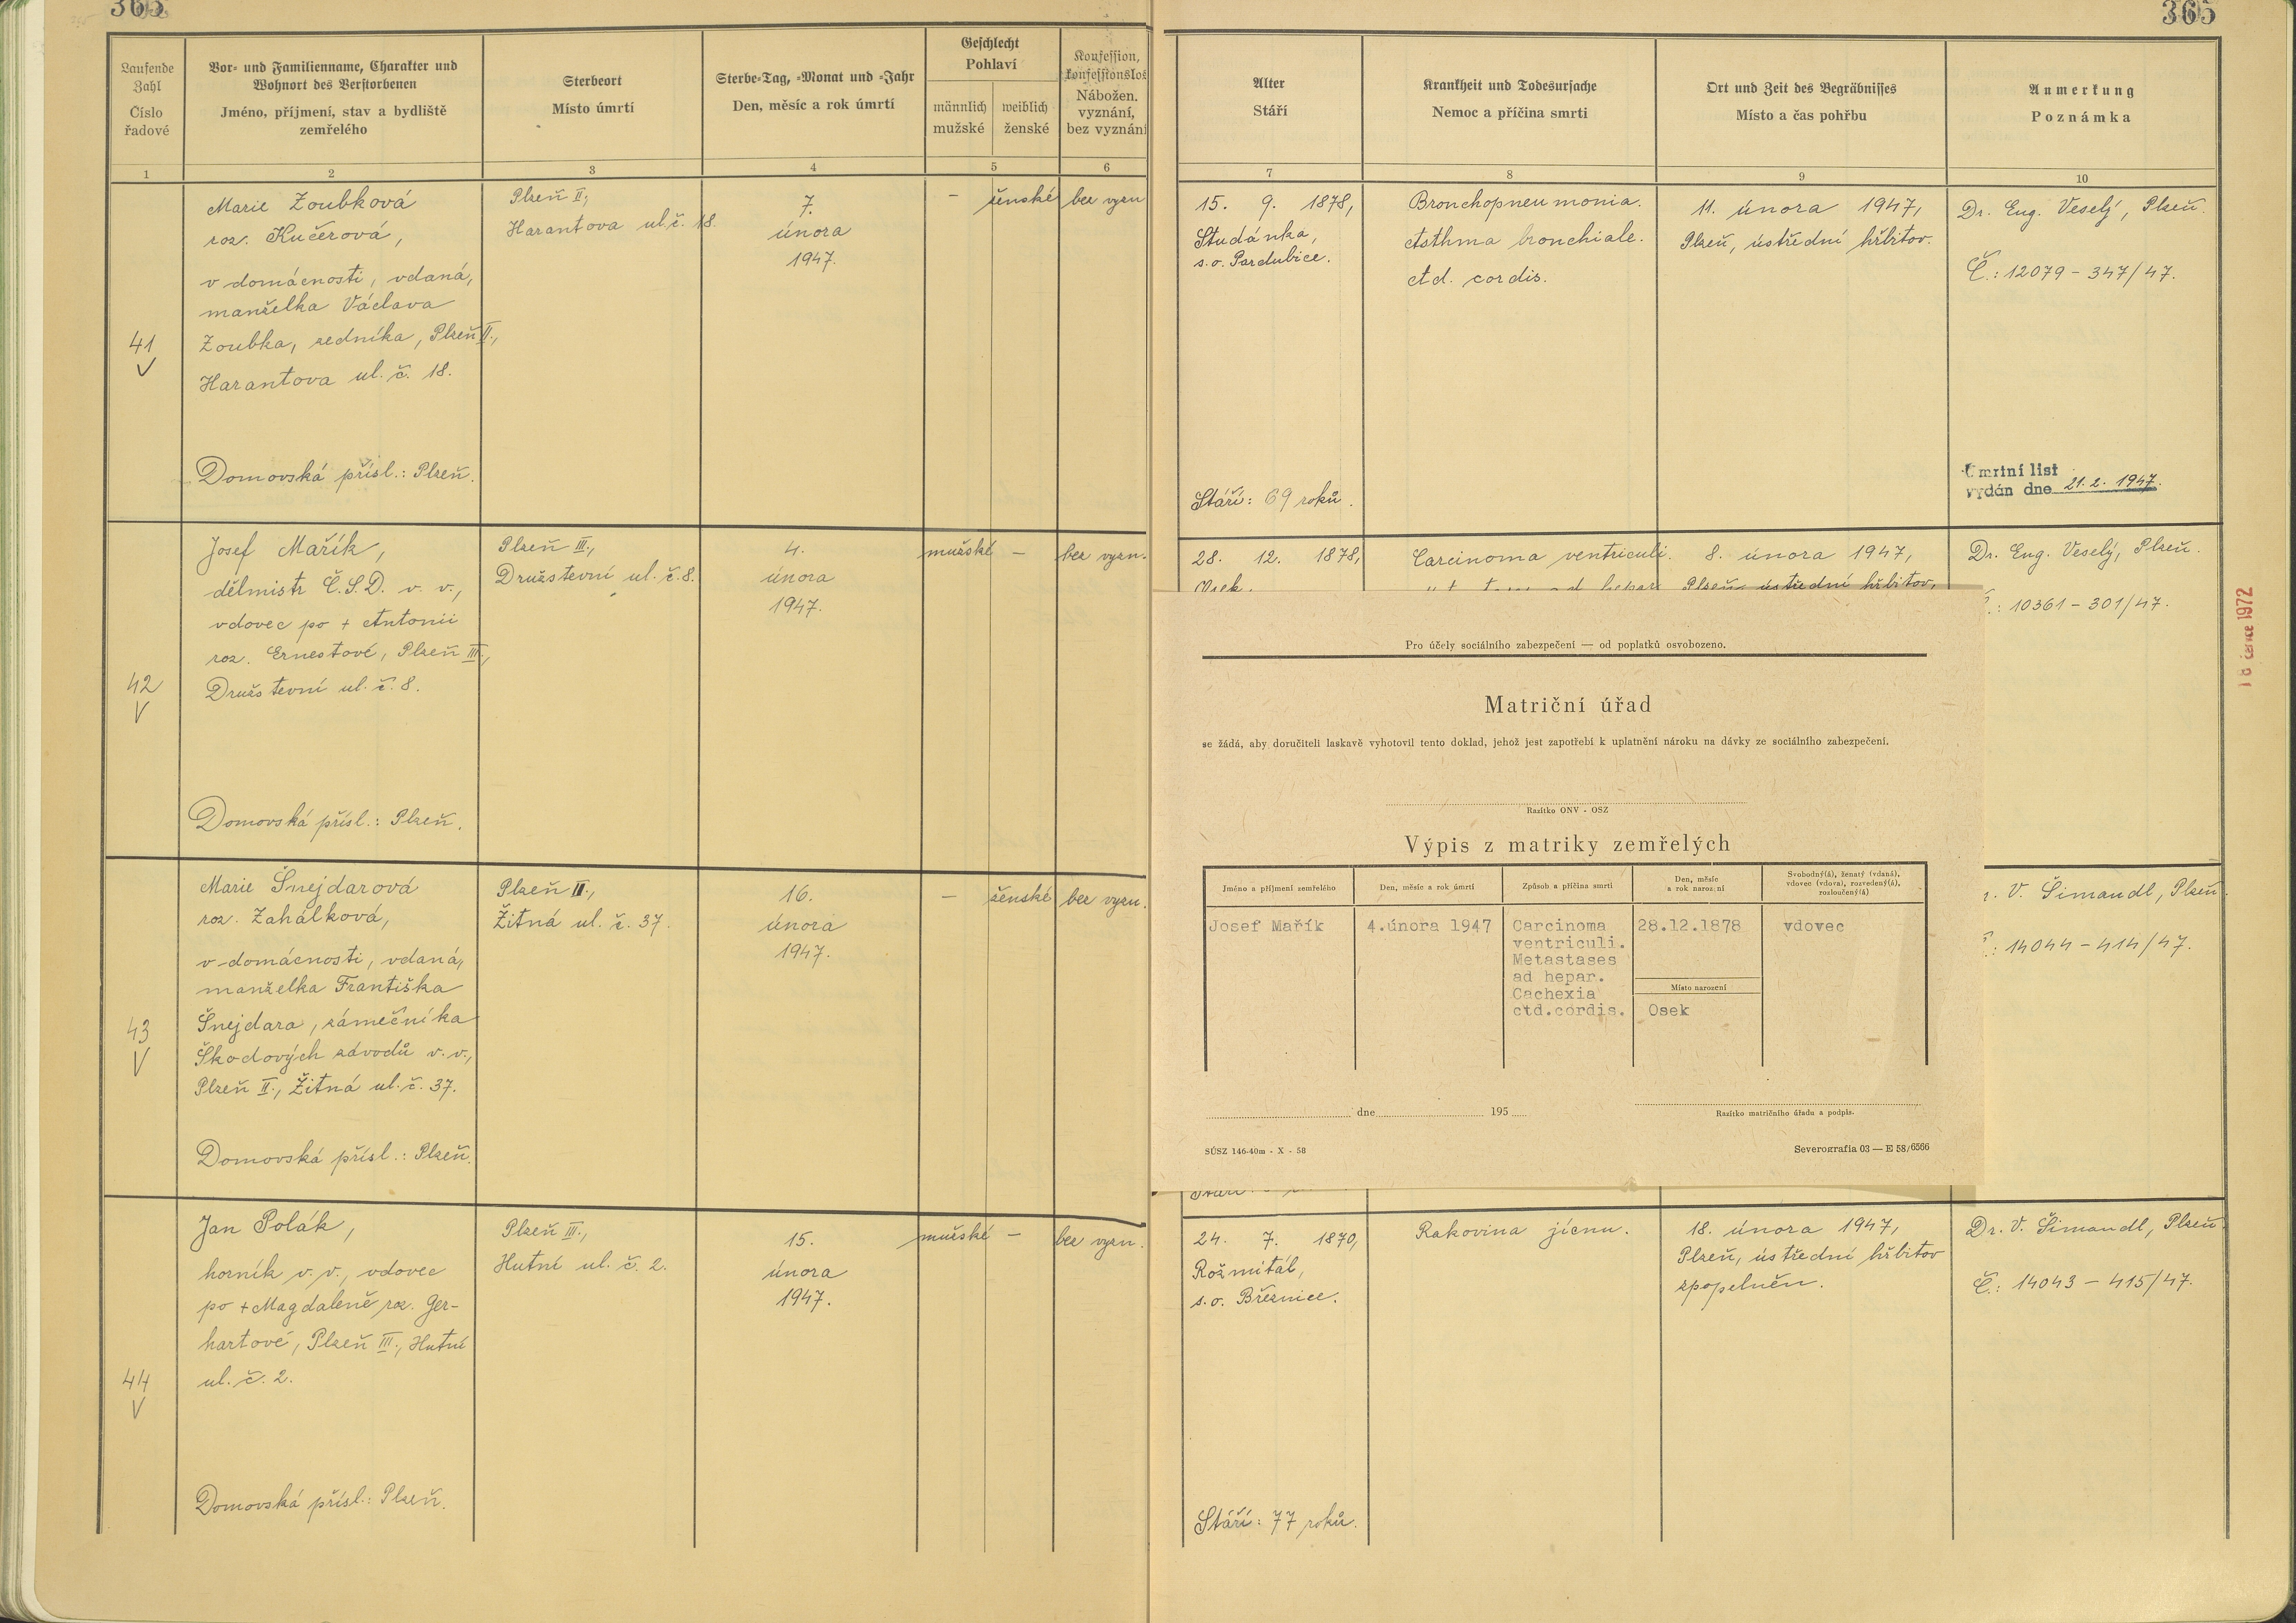 365
365
Laufende Zahl
Číslo řadové
Vor- und Familienname, Charakter und Wohnort des Verstorbenen
Jméno, příjmení, stav a bydliště zemřelého
Sterbeort
Místo úmrtí
Sterbe-Tag, -Monat und -Jahr
Den, měsíc a rok úmrtí
Geschlecht
Pohlaví
männlich
mužské
weiblich
ženské
Konfession, konfessionslos
Nábožen. vyznání, bez vyznání
Alter
Stáří
Krankheit und Todesursache
Nemoc a příčina smrti
Ort und Zeit des Begräbnisses
Místo a čas pohřbu
Anmerkung
Poznámka
1 2 3 4 5 6 7 8 9 10
41
V
Marie Zoubková
roz. Kučerová,
v domácnosti, vdaná,
manželka Václava
Zoubka, zedníka, Plzeň II.,
Harantova ul. č. 18.
Domovská přísl.: Plzeň.
Plzeň II.,
Harantova ul. č. 18.
7.
února
1947.
– ženské
bez vyzn
15. 9. 1878,
Studánka,
s.o. Pardubice.
Stáří: 69 roků.
Bronchopneumonia.
Asthma bronchiale.
Ctd. cordis.
11. února 1947,
Plzeň, ústřední hřbitov.
Dr. Eug. Veselý, Plzeň.
Č.: 12079 – 347/47.
Úmrtní list
vydán dne 21.2. 1947.
42
V
Josef Mařík,
dělmistr Č.S.D. v. v.,
vdovec po + Antonii
roz. Ernestové, Plzeň III.,
Družstevní ul. č. 8.
Domovská přísl.: Plzeň.
Plzeň III.,
Družstevní ul. č. 8.
4.
února
1947.
mužské –
bez vyzn.
28. 12. 1878,
Osek.
Carcinoma ventriculi.
8. února 1947,
Plzeň, ústřední hřbitov,
Dr. Eug. Veselý, Plzeň.
.: 10361 – 301/47.
18 července 1972
Pro účely sociálního zabezpečení — od poplatků osvobozeno.
Matriční úřad
se žádá, aby doručiteli laskavě vyhotovil tento doklad, jehož jest zapotřebí k uplatnění nároku na dávky ze sociálního zabezpečení.
Razítko ONV - OSZ
Výpis z matriky zemřelých
Jméno a příjmení zemřelého
Den, měsíc a rok úmrtí
Způsob a příčina smrti
Den, měsíc a rok narození
Svobodný(á), ženatý (vdaná), vdovec (vdova), rozvedený(á), rozloučený(á)
Josef Mařík
4.února 1947
Carcinoma
ventriculi.
Metastases
ad hepar.
Cachexia
ctd.cordis.
28.12.1878
Místo narození
Osek
vdovec
dne 195
Razítko matričního úřadu a podpis.
SÚSZ 146-40m - X - 58
Severografia 03 — E 58/6566
43
V
Marie Šnejdarová
roz. Zahálková,
v domácnosti, vdaná,
manželka Františka
Šnejdara, zámečníka
Škodových závodů v. v.,
Plzeň II., Žitná ul. č. 37.
Domovská přísl.: Plzeň.
Plzeň II.,
Žitná ul. č. 37.
16.
února
1947.
– ženské
bez vyzn.
. V. Šimandl, Plzeň.
.: 14044 – 414/47.
44
V
Jan Polák,
horník v. v., vdovec
po + Magdaleně roz. Ger-
hartové, Plzeň III., Hutní
ul. č. 2.
Domovská přísl.: Plzeň.
Plzeň III.,
Hutní ul. č. 2.
15.
února
1947.
mužské –
bez vyzn.
24. 7. 1870,
Rožmitál,
s.o. Březnice.
Stáří: 77 roků.
Rakovina jícnu.
18. února 1947,
Plzeň, ústřední hřbitov
zpopelněn.
Dr. V. Šimandl, Plzeň
Č.: 14043 – 415/47.